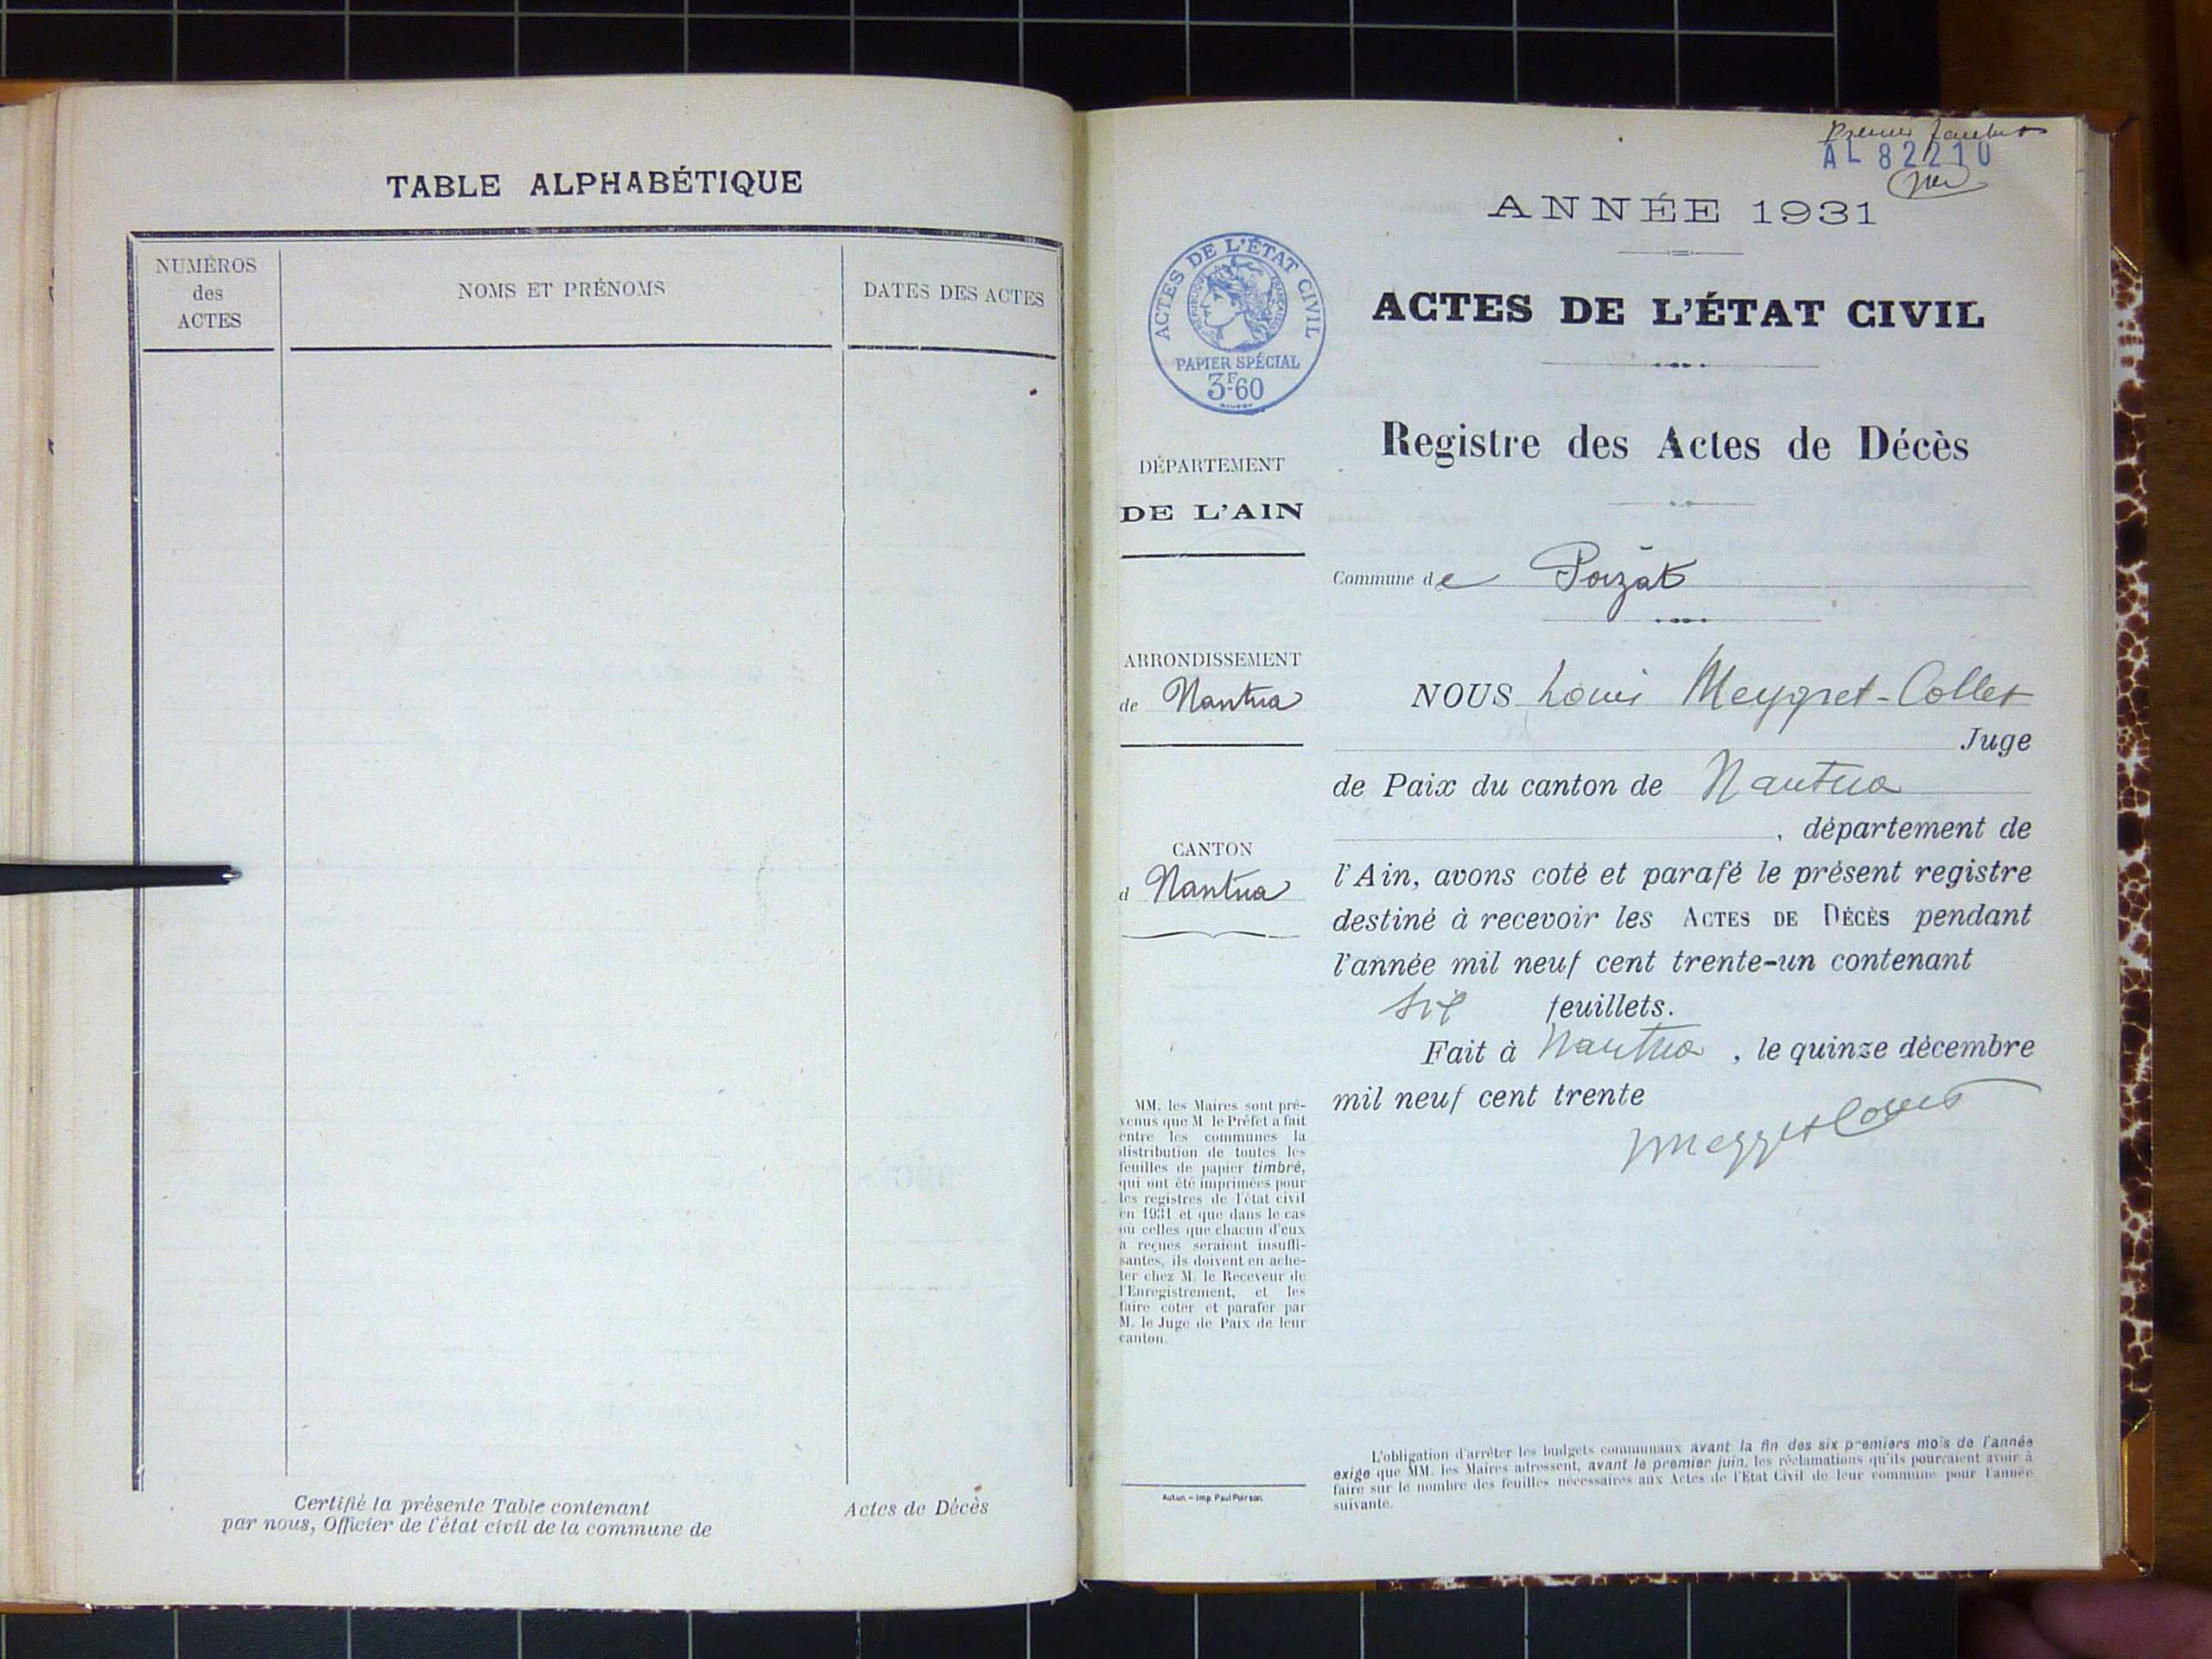 TABLE ALPHABÉTIQUE
NUMÉROS
des
ACTES
NOMS ET PRÉNOMS
DATES DES ACTES
Certifié la présente Table contenant
Actes de Décès
par nous, Officier de l'état civil de la commune de
Premier feuillet
AL 82210
ANNÉE 1931
ACTES DE L'ÉTAT CIVIL
RÉPUBLIQUE FRANÇAISE
PAPIER SPÉCIAL
3F60
ACTES DE L'ÉTAT CIVIL
Registre des Actes de Décès
DÉPARTEMENT
DE L'AIN
Commune de Poizat
ARRONDISSEMENT
de Nantua
CANTON
d Nantua
NOUS Louis Meygret-Collet
Juge
de Paix du canton de Nantua
, département de
l'Ain, avons coté et parafé le présent registre
destiné à recevoir les ACTES DE DÉCÈS pendant
l'année mil neuf cent trente-un contenant
six feuillets.
Fait à Nantua, le quinze décembre
mil neuf cent trente
MM. les Maires sont pré-
venus que M le Préfet a fait
entre les communes la
distribution de toutes les
feuilles de papier timbré,
qui ont été imprimées pour
les registres de l'état civil
en 1931 et que dans le cas
où celles que chacun d'eux
a reçues seraient insuffi-
santes, ils doivent en ache-
ter chez M. le Receveur de
l'Enregistrement, et les
faire coter et parafer par
M. le Juge de Paix de leur
canton.
Autun. – Imp. Paul Poirson.
L'obligation d'arrêter les budgets communaux avant la fin des six premiers mois de l'année
exige que MM. les Maires adressent, avant le premier juin, les réclamations qu'ils pourraient avoir à
faire sur le nombre des feuilles nécessaires aux Actes de l'Etat Civil de leur commune pour l'année
suivante.